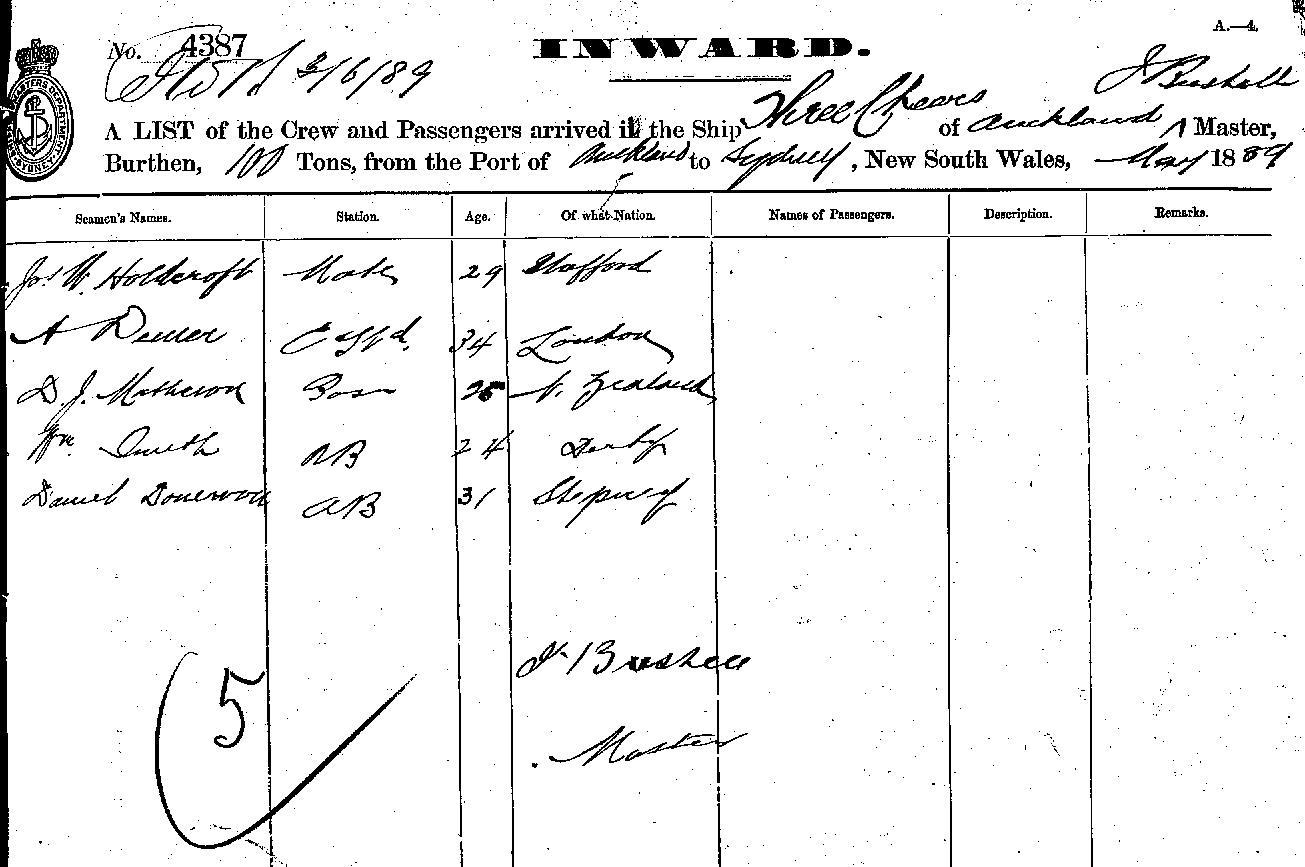 A.—4.
No. 4387
INWARD.
3/6/89
J Bushell
A LIST of the Crew and Passengers arrived in the Ship Three Cheers of Auckland Master,
Burthen, 100 Tons, from the Port of Auckland to Sydney, New South Wales, May 1889
Seamen's Names. Station. Age. Of what Nation. Names of Passengers. Description. Remarks.
Jos W. Holdcroft Mate 29 Stafford
A 34 London
D. J. Matheson Bosn 25 N. Zealand
Wm. Smith AB 24 Derby
Daniel AB 31 Stepney
J. Bushell
5
Master